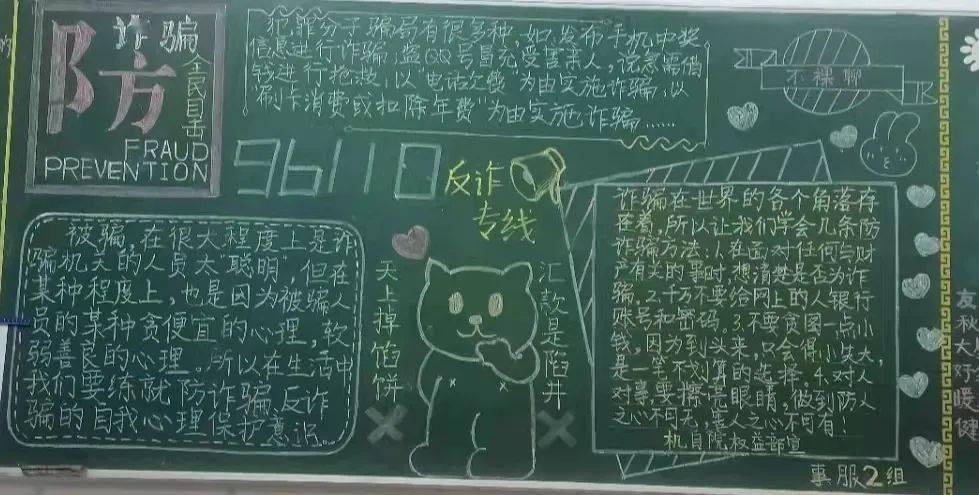 防
诈骗
全民目击
FRAUD
PREVENTION
犯罪分子骗局有很多种,如发布手机中奖
信息进行诈骗,盗QQ号冒充受害人,
钱进行 以"电话欠费"为由实施诈骗,以
"刷卡消费或扣除年费"为由实施诈骗……
不裸聊
96110
反诈
专线
被骗,在很大程度上是诈
骗机关的人员太"聪明",但在
某种程度上,也是因为被骗人
员的某种贪便宜的心理,软
弱善良的心理。所以在生活中
我们要练就防诈骗,反诈
骗的自我心理保护意识。
天上掉馅饼
汇款是陷井
诈骗在世界的各个角落存
在着,所以让我们学会几条防
诈骗方法。1.在面对任何与财
产有关的事时,想清楚是否为诈
骗。2.千万不要给网上的人银行
账号和密码。3.不要贪图一点小
钱,因为到头来,只会得小失大,
是一笔不划算的选择。4.对人
对事,要擦亮眼睛,做到防人
之心不可无,害人之心不可有!
机自院权益部宣
事服2组